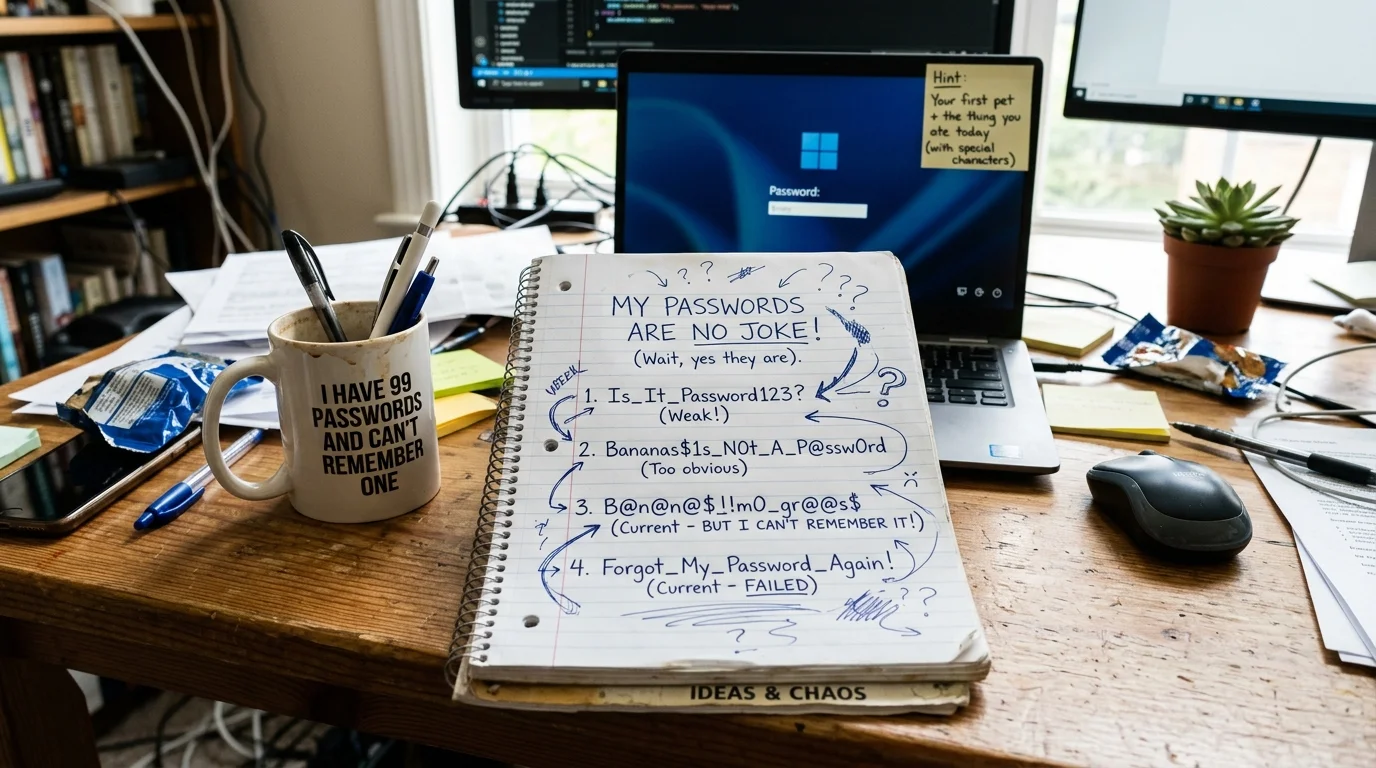 Hint:
Your first pet
+ the thing you
ate today
(with special
characters)
Password:
I HAVE 99
PASSWORDS
AND CAN'T
REMEMBER
ONE
MY PASSWORDS
ARE NO JOKE!
(Wait, yes they are).
1. Is_It_Password123?
(Weak!)
2. Bananas$1s_N0t_A_P@ssw0rd
(Too obvious)
3. B@n@n@$_!!m0_gr@@s$
(Current - BUT I CAN'T REMEMBER IT!)
4. Forgot_My_Password_Again!
(Current - FAILED)
IDEAS & CHAOS